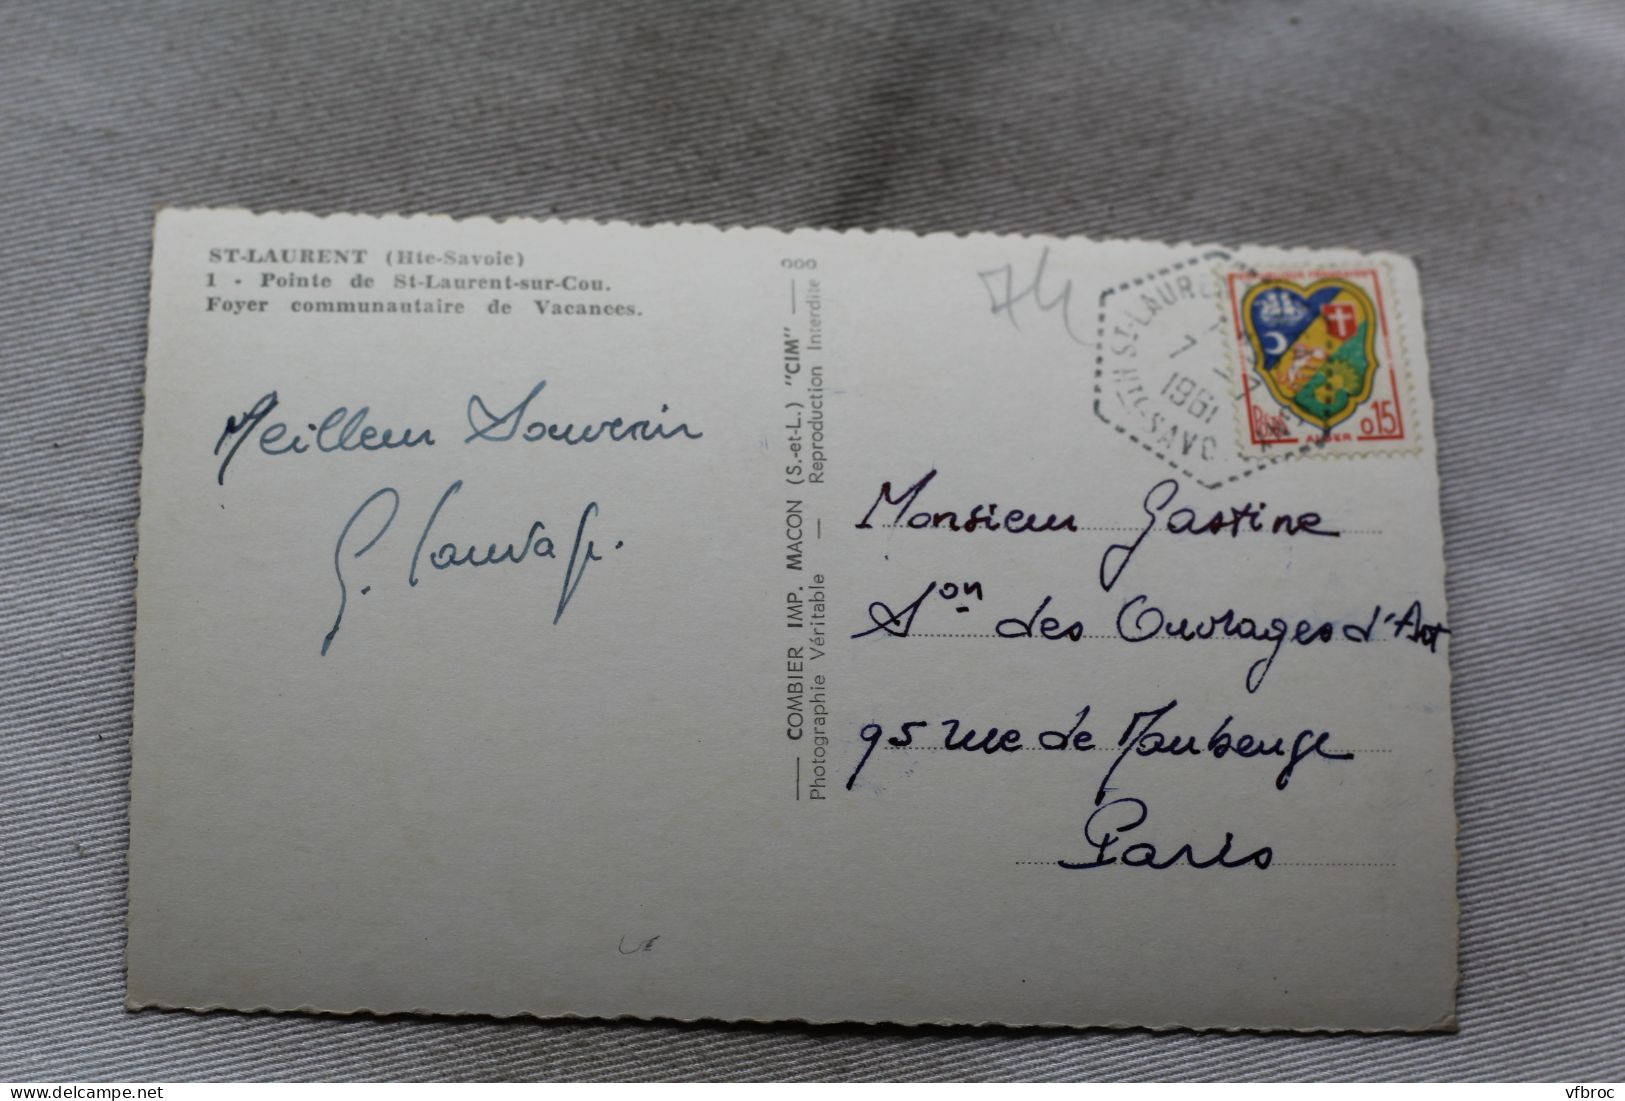 ST-LAURENT (Hte-Savoie)
1 - Pointe de St-Laurent-sur-Cou.
Foyer communautaire de Vacances.
Meilleur Souvenir
COMBIER IMP. MACON (S.-et-L.) "CIM"
Photographie Véritable — Reproduction Interdite
74
ST-LAURENT
7
1961
HTE-SAVO
ALGER 0,15
Monsieur Gastine
Son des Ouvrages d'Art
95 rue de Maubeuge
Paris
vfbroc